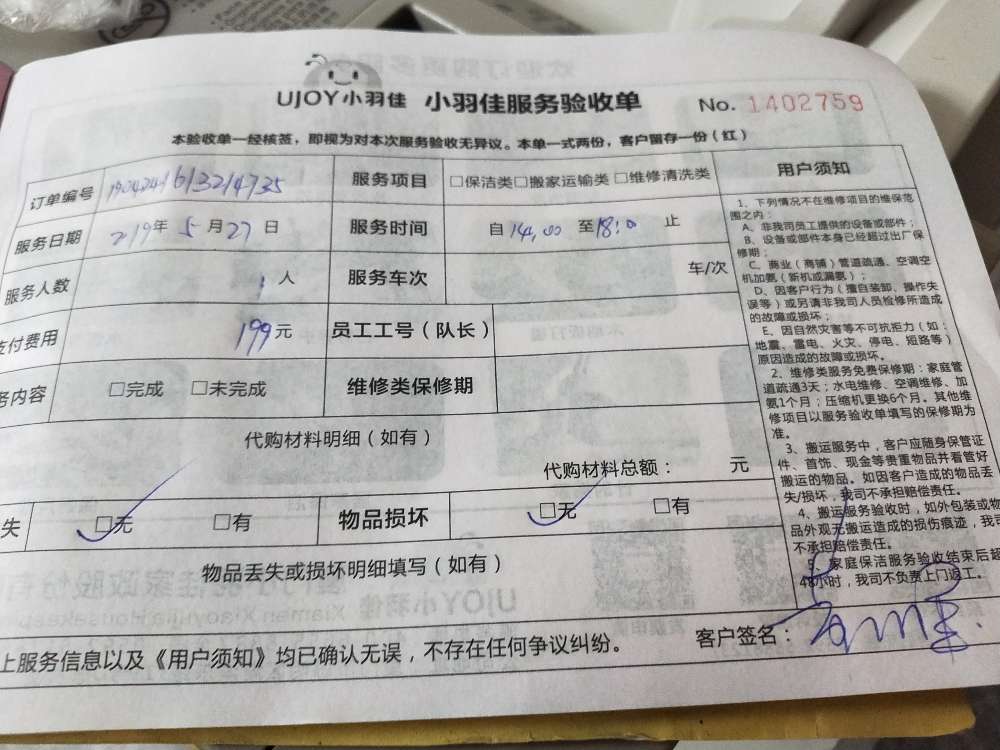 UJOY小羽佳 小羽佳服务验收单 No. 1402759
本验收单一经核签，即视为对本次服务验收无异议。本单一式两份，客户留存一份（红）
订单编号 服务项目 □保洁类□搬家运输类 □维修清洗类
服务日期 219年 5月27日 服务时间 自 14:00 至 18:0 止
服务人数 1人 服务车次 车/次
支付费用 199元 员工工号（队长）
务内容 □完成 □未完成 维修类保修期
代购材料明细（如有）
代购材料总额： 元
失 □无 □有 物品损坏 □无 □有
物品丢失或损坏明细填写（如有）
上服务信息以及《用户须知》均已确认无误，不存在任何争议纠纷。 客户签名：
用户须知
1、下列情况不在维修项目的维保范
围之内：
A、非我司员工提供的设备或部件；
B、设备或部件本身已经超过出厂保
修期；
C、商业（商铺）管道疏通、空调空
机加氨（新机或漏氨）；
D、因客户行为（擅自装卸、操作失
误等）或另请非我司人员检修所造成
的故障或损坏；
E、因自然灾害等不可抗拒力（如：
地震、雷电、火灾、停电、短路等）
原因造成的故障或损坏。
2、维修类服务免费保修期：家庭管
道疏通3天；水电维修、空调维修、加
氨1个月；压缩机更换6个月。其他维
修项目以服务验收单填写的保修期为
准。
3、搬运服务中，客户应随身保管证
件、首饰、现金等贵重物品并看管好
搬运的物品。如因客户造成的物品丢
失/损坏，我司不承担赔偿责任。
4、搬运服务验收时，如外包装或物
品外观无搬运造成的损伤痕迹，我司
不承担赔偿责任。
5、家庭保洁服务验收结束后超
48小时，我司不负责上门返工。